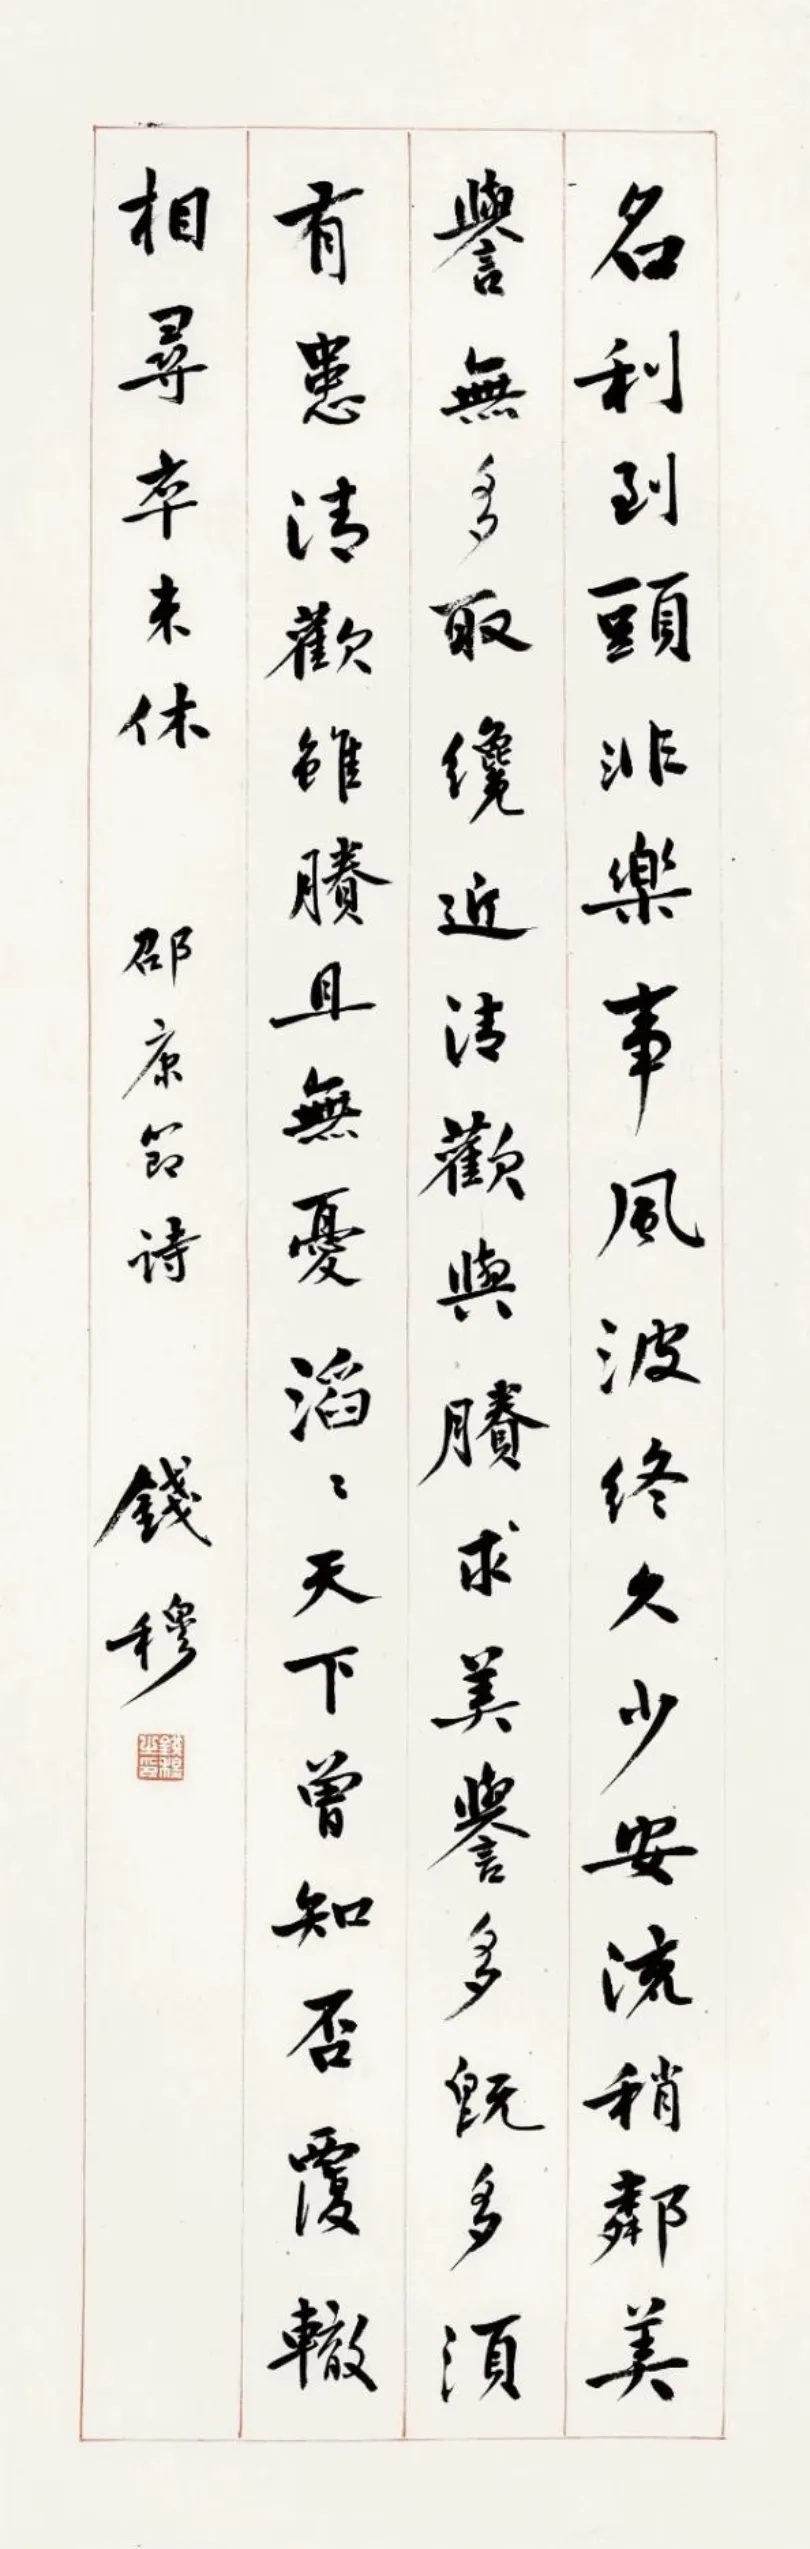 名利到頭非樂事風波終久少安流稍鄰美
譽無多取纔近清歡與賸求美譽多既多須
有患清歡雖賸且無憂滔〻天下曾知否覆轍
相尋卒未休 邵康節詩 錢穆
錢穆之印